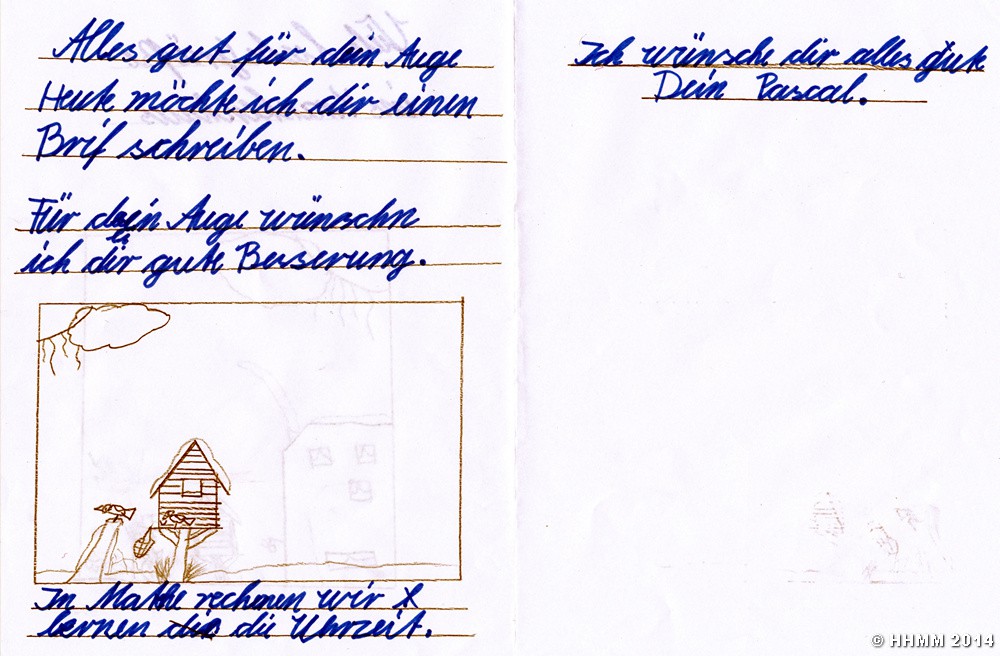 Alles gut für dein Auge
Heute möchte ich dir einen
Brif schreiben.
Für dein Auge wünschn
ich dir gute Besserung.
In Mathe rechnen wir
lernen die Uhrzeit.
Ich wünsche dir alles gute
Dein Pascal.
© HHMM 2014